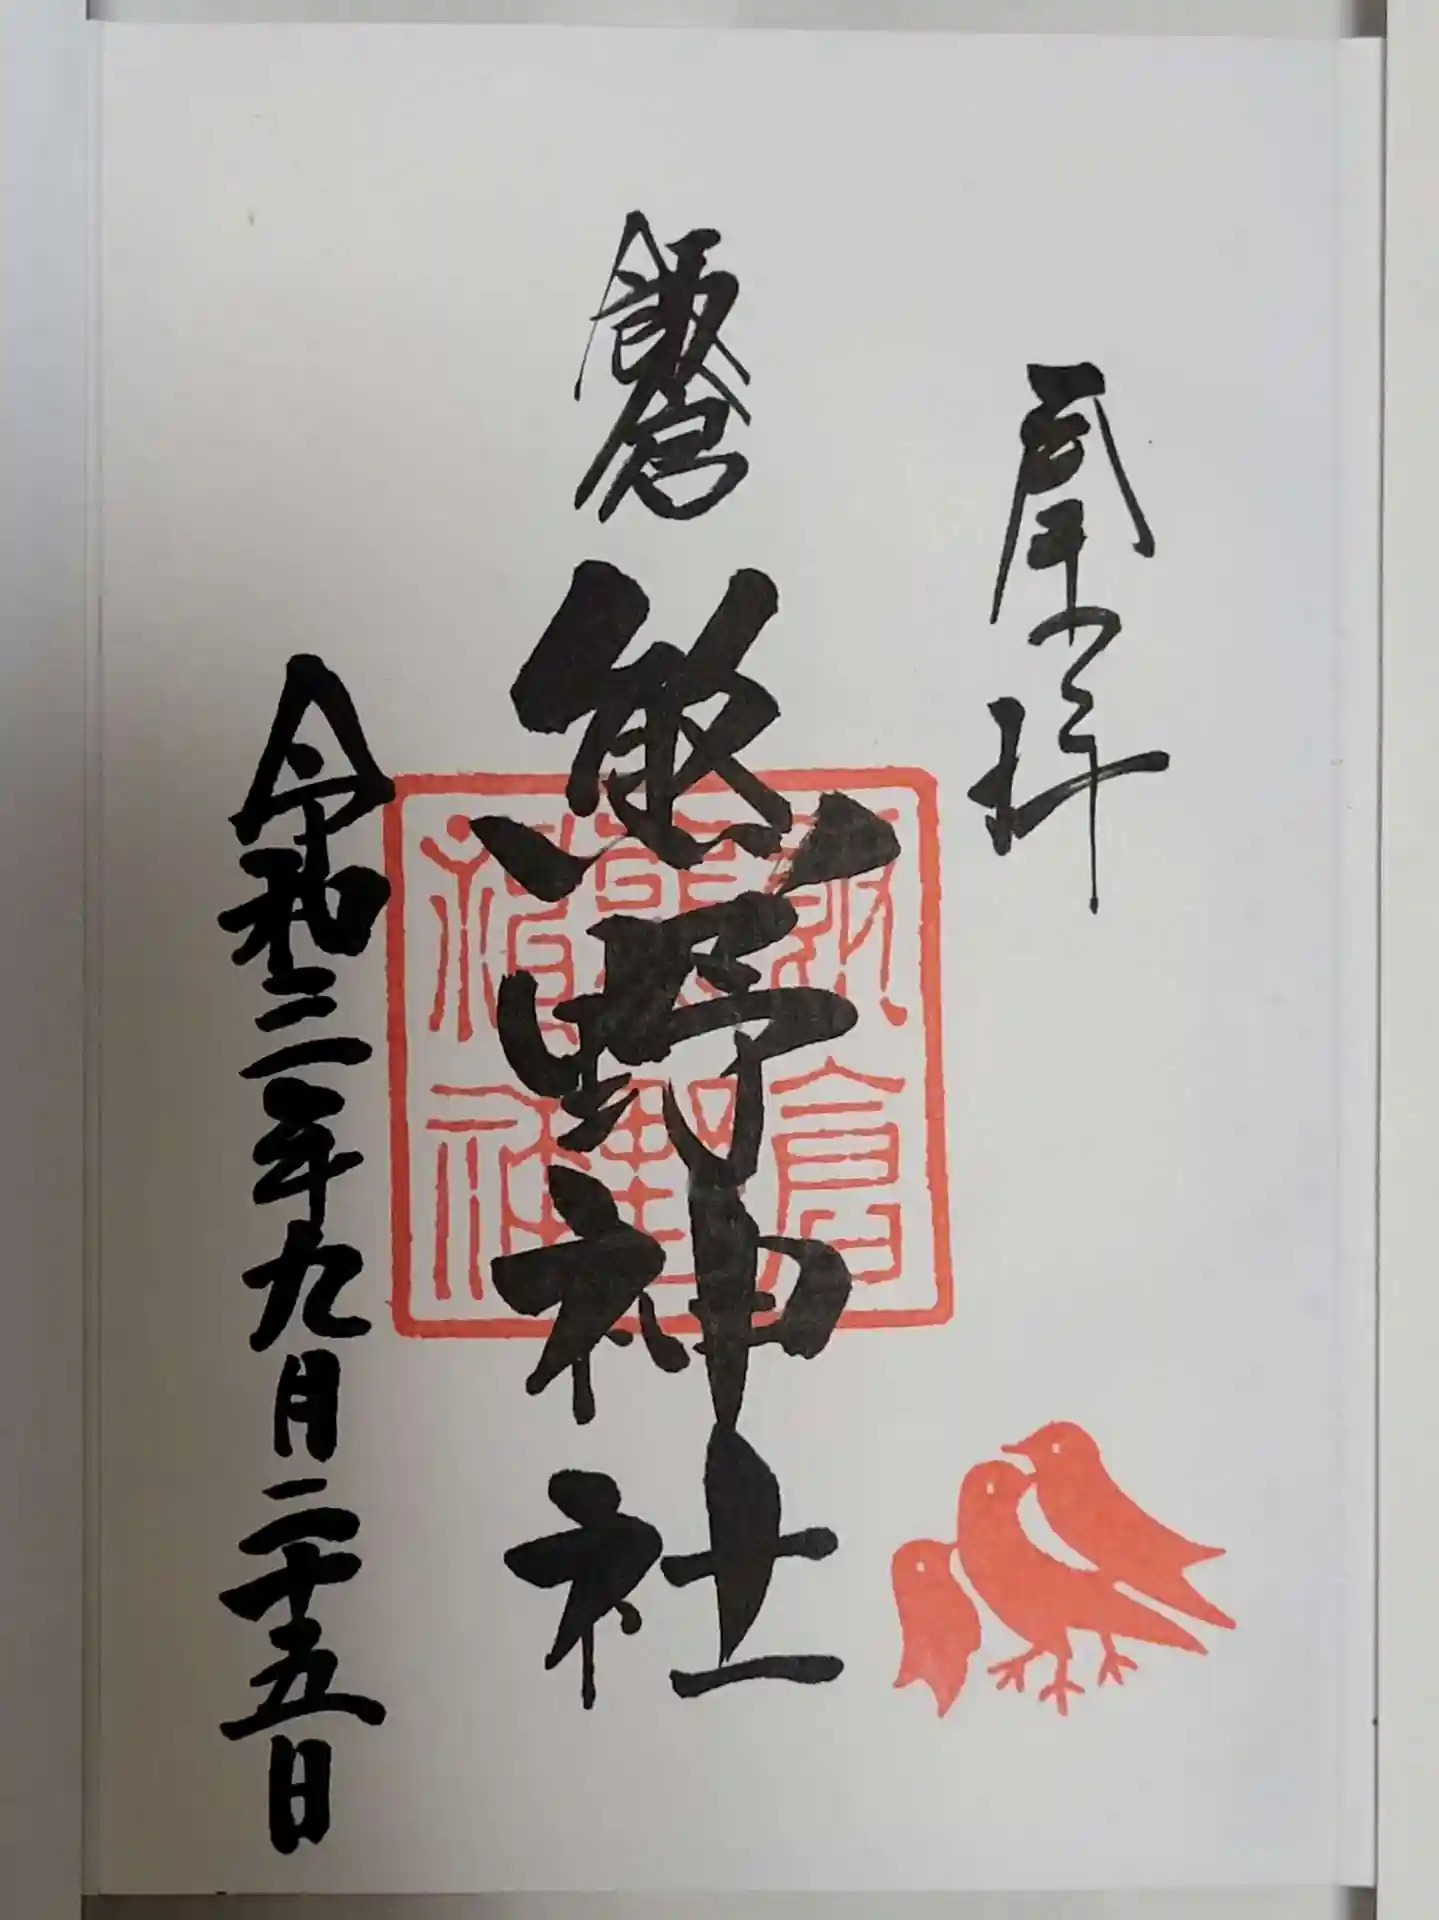 奉拝
飯倉
熊野神社
飯倉
熊野
神社
令和二年九月二十五日